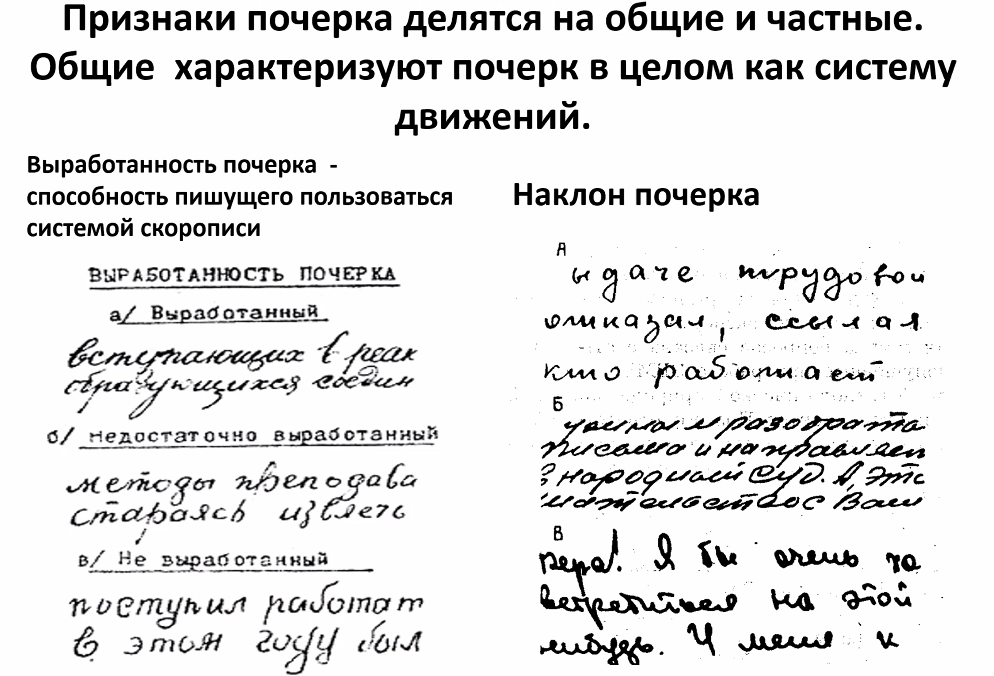 Признаки почерка делятся на общие и частные.
Общие характеризуют почерк в целом как систему
движений.
Выработанность почерка -
способность пишущего пользоваться
системой скорописи
ВЫРАБОТАННОСТЬ ПОЧЕРКА
а/ Выработанный
вступающих в реак
образующихся соедин
б/ Недостаточно выработанный
методы преподава
стараясь извлечь
в/ Не выработанный
поступил работат
в этом году был
Наклон почерка
А
ыдаче трудовой
отказал, ссылая
кто работает
Б
разобрата
письма и направляем
народный Суд. А, эте
Вами
В
Вера! Я бы очень хо
встретиться на этой
нибудь. У меня к